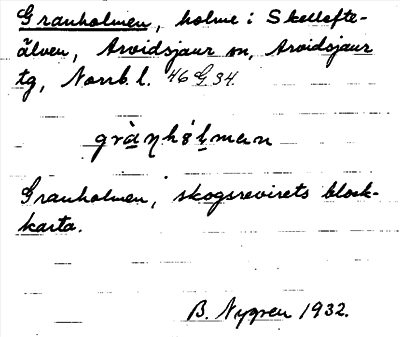 Granholmen, holme i Skellefte-
älven, Arvidsjaur sn, Arvidsjaur
tg, Norrb. l. 46 G 34.
Granholmen, skogsrevirets block-
karta.
B. Nygren 1932.